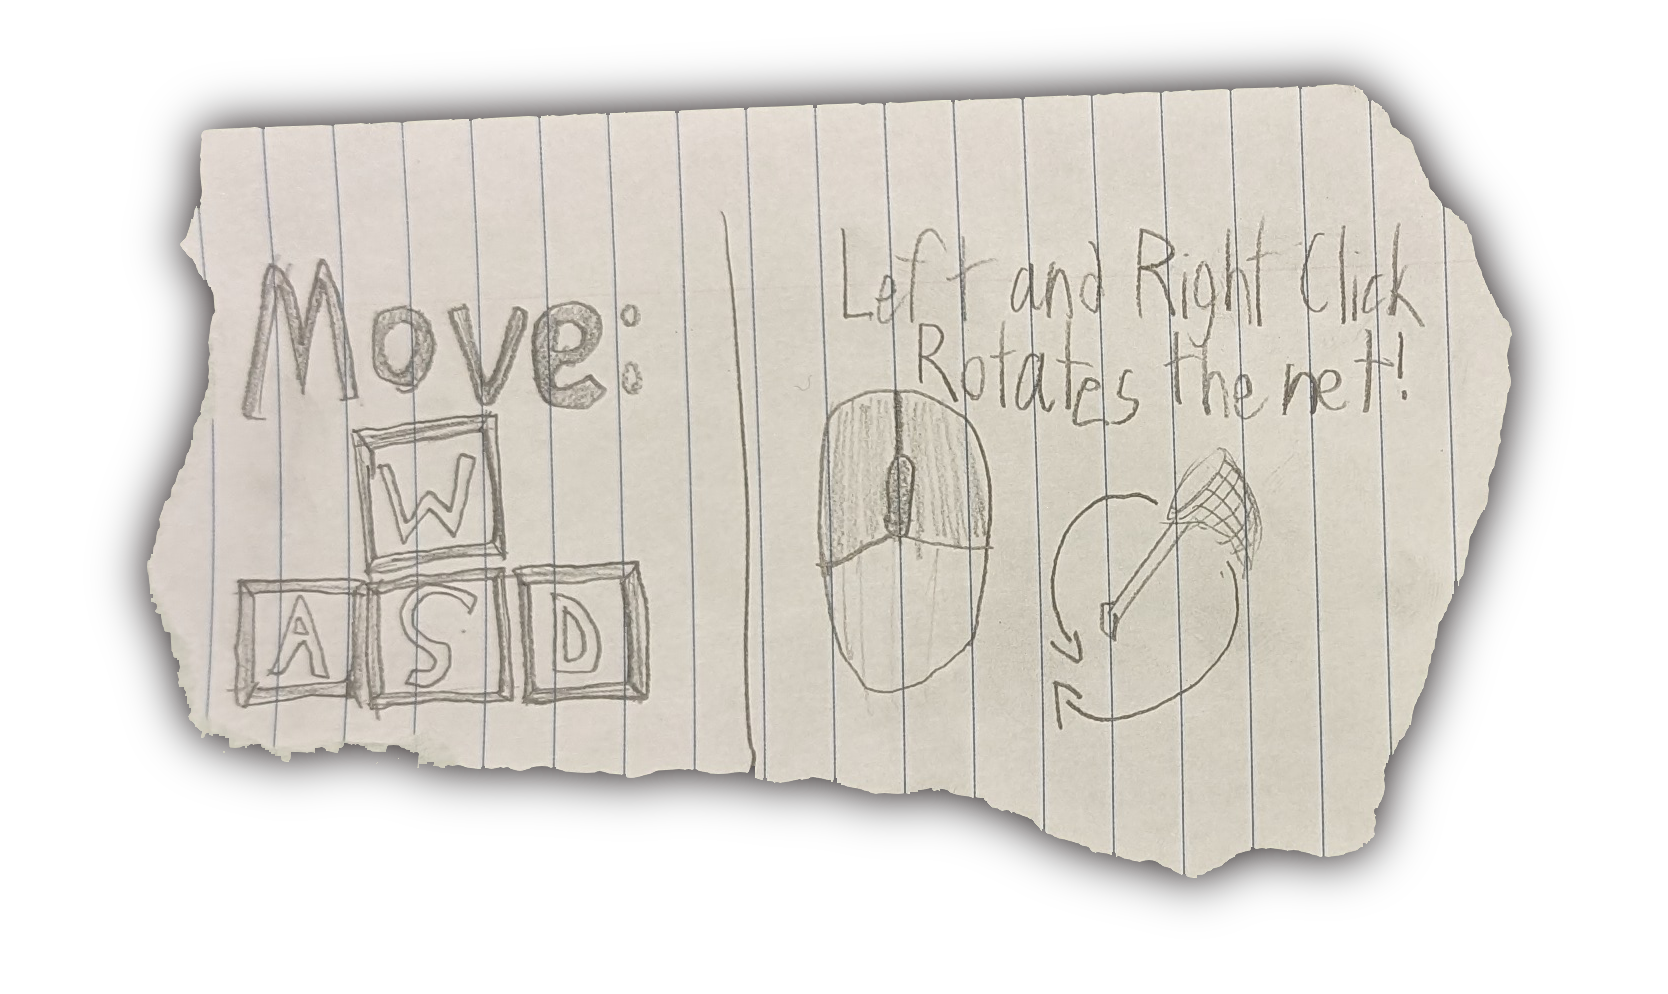 Move:
W
A S D
Left and Right Click
Rotates the net!